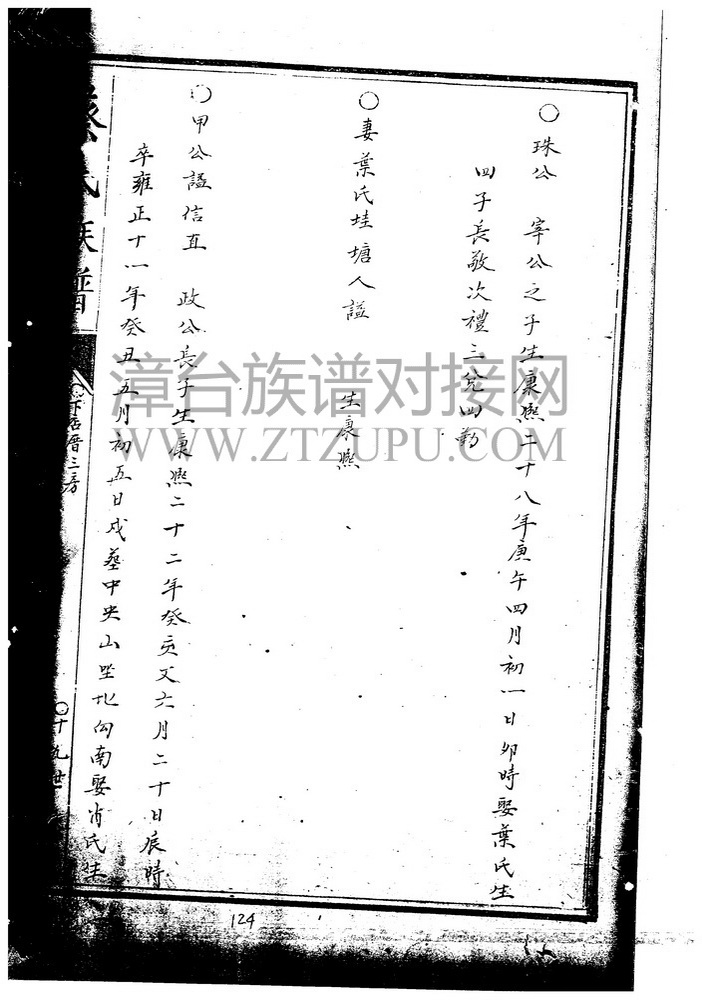 ○珠公 宰公之子生康熙二十八年庚午四月初一日卯時娶葉氏生
四子長敬次禮三兌四勤
○妻葉氏埕塘人謚 生康熙
○甲公謚信直 政公長子生康熙二十二年癸亥又六月二十日辰時
卒雍正十一年癸丑五月初五日戌葬中央山坐北向南娶肖氏生
蔡氏族譜
厝三房
○十九世
124
漳台族谱对接网
WWW.ZTZUPU.COM